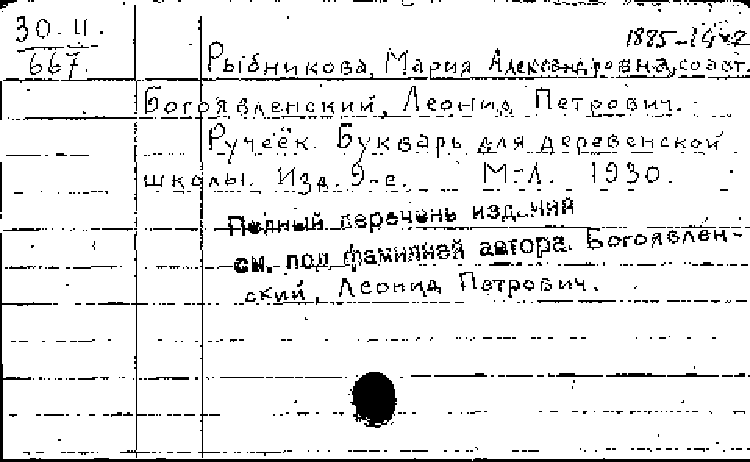 30.II.
667.
Рыбникова, Мария Александровна, соавт.
Богоявленский, Леонид Петрович.
Ручеёк. Букварь для деревенской
школы. Изд. 9-е. М.-Л. 1930.
Полный перечень изданий
см. под фамилией автора. Богоявлен-
ский, Леонид Петрович.